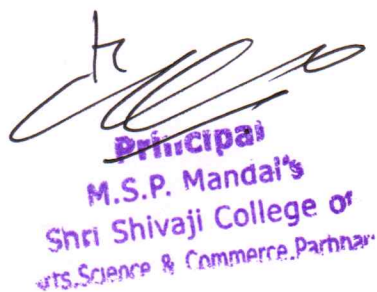 Principal
M.S.P. Mandal's
Shri Shivaji College of
Arts,Science & Commerce,Parbhani